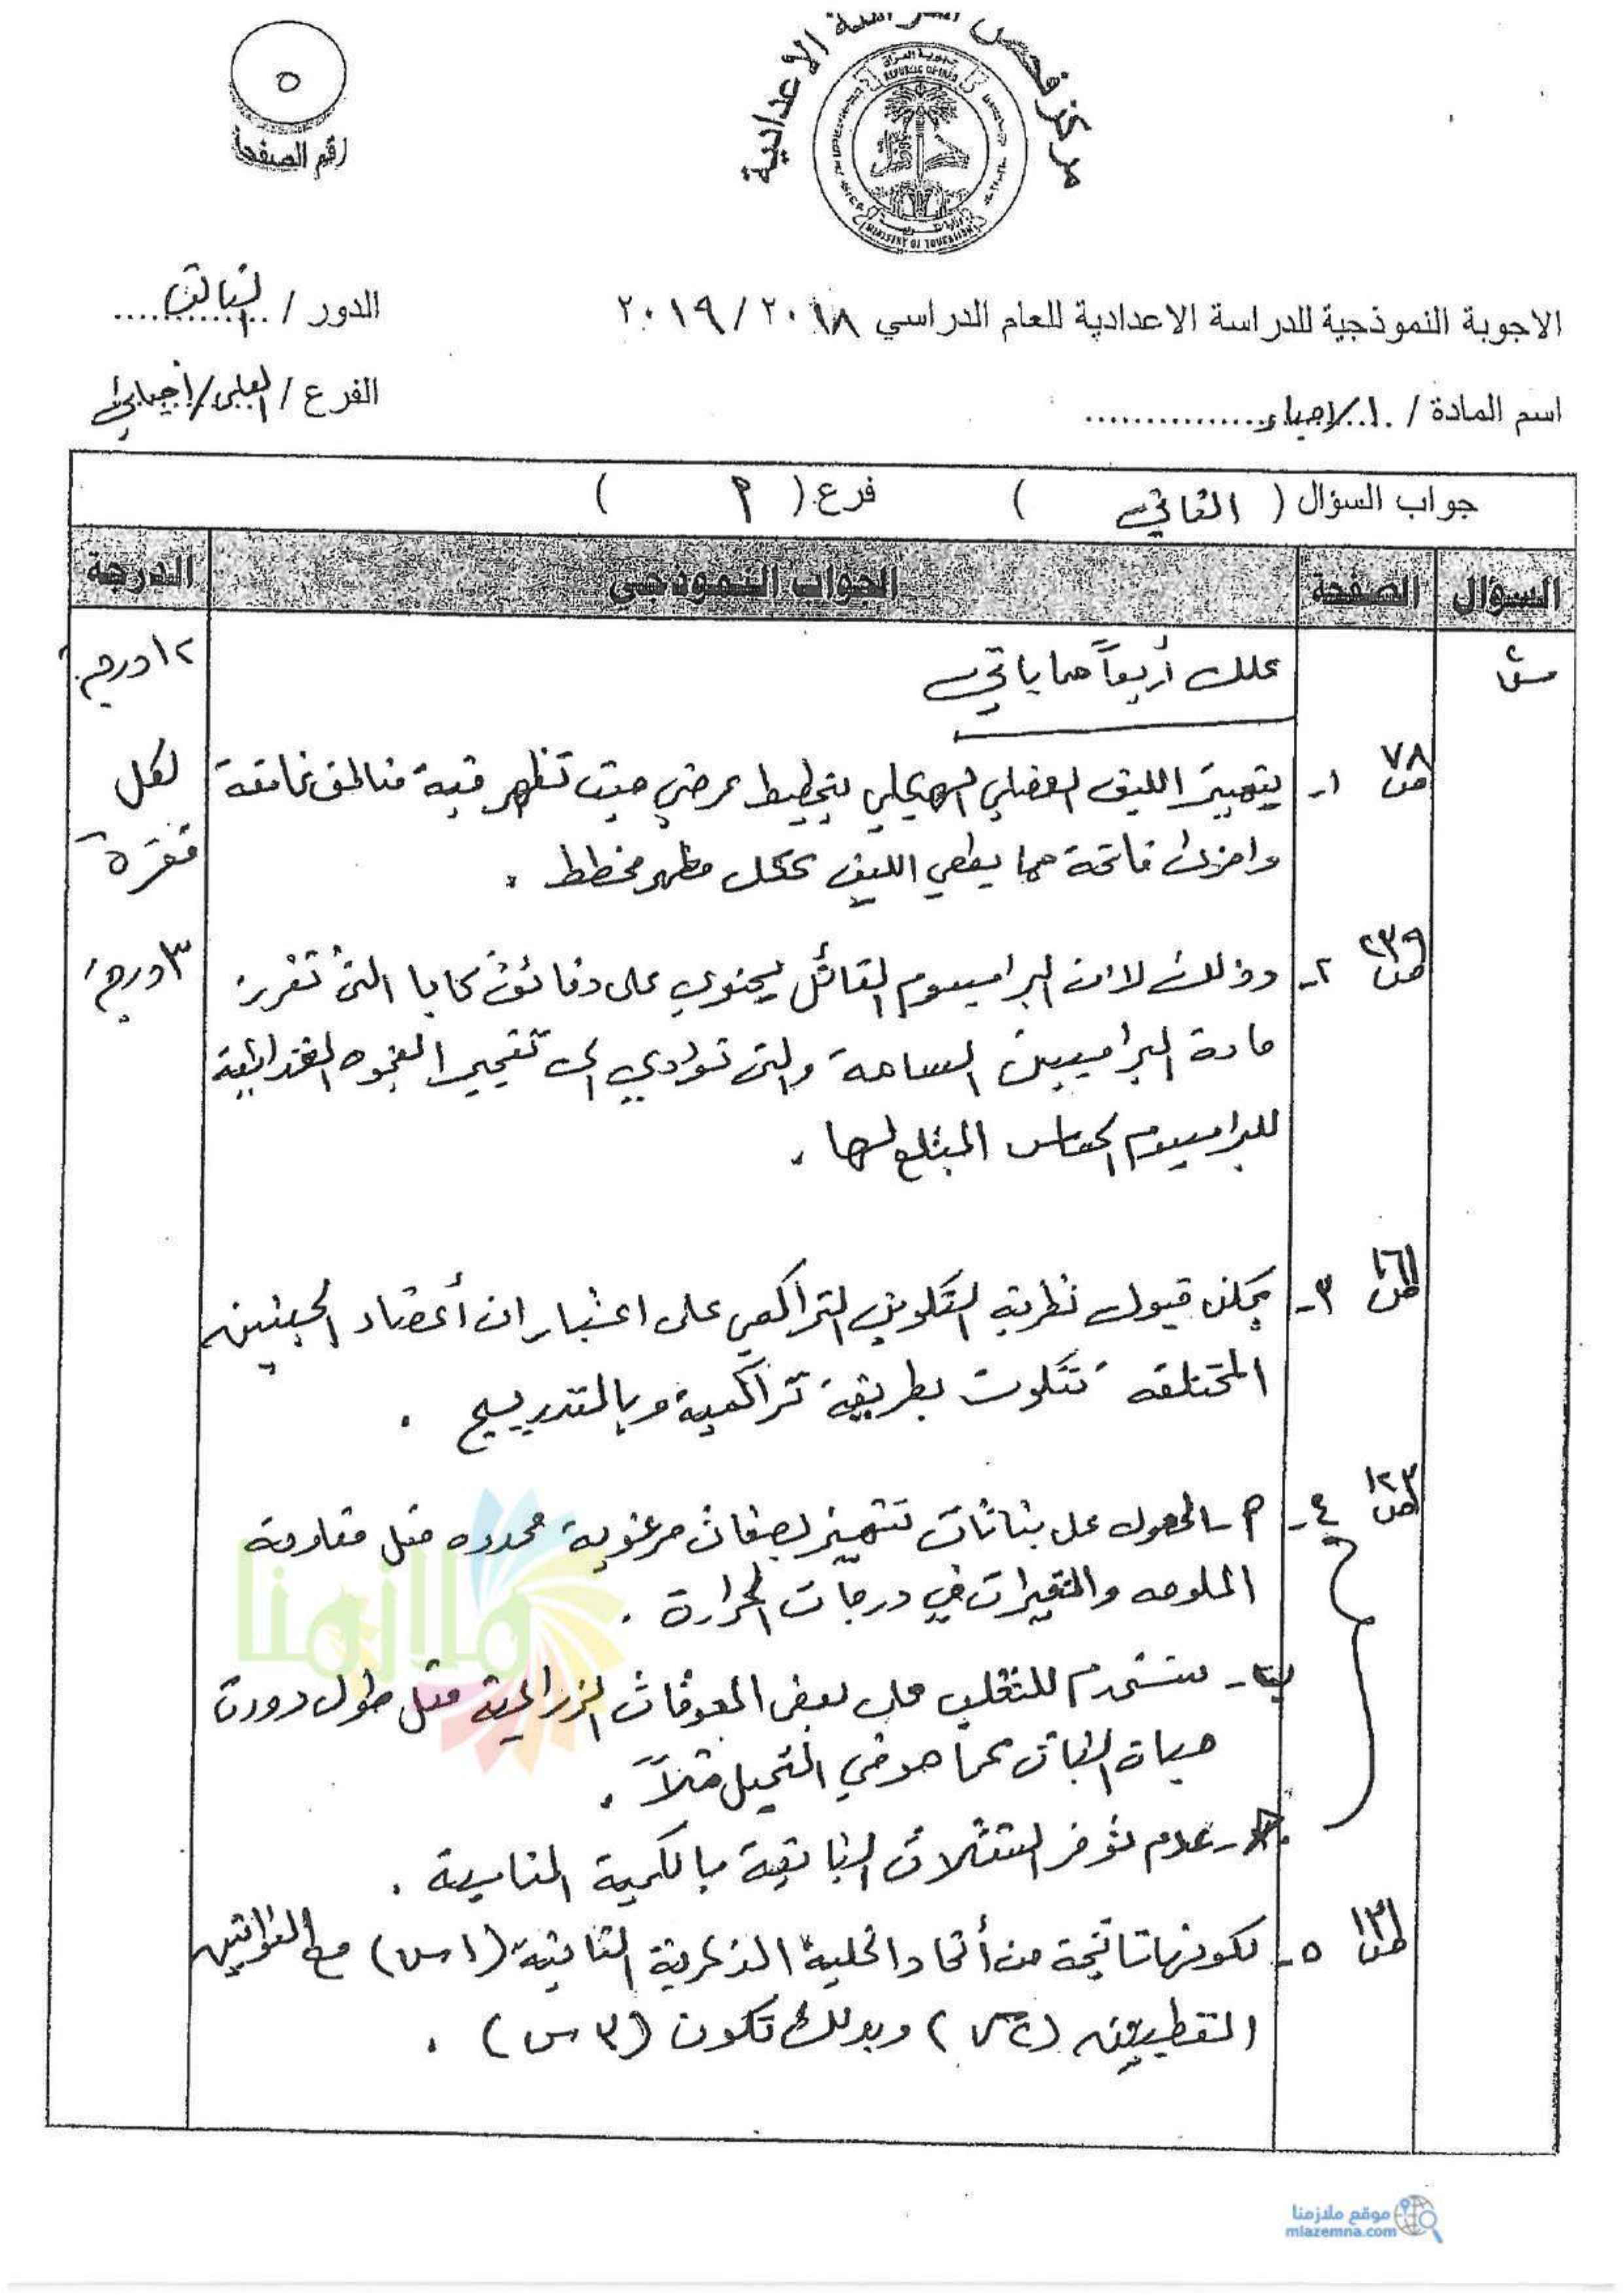 مركز فحص الدراسة الاعدادية
٥
رقم الصفحة
الاجوبة النموذجية للدراسة الاعدادية للعام الدراسي ٢٠١٨ / ٢٠١٩
الدور / الثالث
اسم المادة / الاحياء
الفرع / العلمي / احيائي
جواب السؤال ( الثاني ) فرع ( ٢ )
السؤال الصفحة الجواب النموذجي الدرجة
س٢ علل أربعاً مما يأتي ١٢ درجة
ص ٧٨ ١- يتميز الليف العضلي الهيكلي بتخطيط عرضي حيث تظهر فيه مناطق غامقة لكل
واخرى فاتحة مما يعطي الليف ككل مظهر مخطط . فقرة
ص ٢٣٩ ٢- وذلك لان البراميسيوم القاتل يحتوي على دقائق كابا التي تفرز ٣ درجة
مادة البراميسين السامة والتي تؤدي الى تفجير الفجوه الغذائية
للبراميسيوم الحساس المبتلع لها .
ص ١٦١ ٣- يمكن قبول نظرية التكوين التراكمي على اعتبار ان أعضاء الجنين
المختلفه تتكون بطريقة تراكمية وبالتدريج .
ص ١٢٣ ٤- ٢- الحصول على نباتات تتميز بصفات مرغوبة محدده مثل مقاومة
الملوحه والتغيرات في درجات الحرارة .
ب- تستخدم للتغلب على بعض المعوقات الزراعية مثل طول دورة
حياة النبات كما هو في النخيل مثلاً .
ج- عدم توفر الشتلات النباتية بالكمية المناسبة .
ص ١٣١ ٥- لكونها ناتجة من أتحاد الخلية الذكرية الثانية (١س) مع النواتين
القطبيتين (٢س) وبذلك تكون (٣س) .
ملازمنا
موقع ملازمنا
mlazemna.com